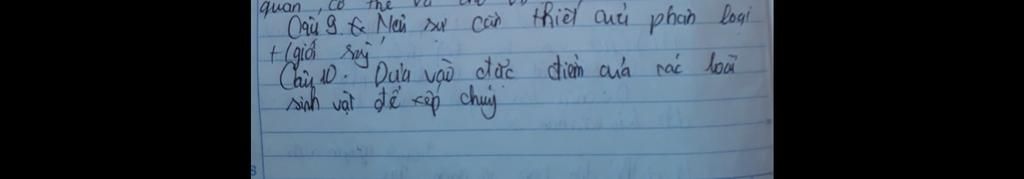 quan, có thể
Câu 9. Nêu sự cần thiết của phân loại
t/giới
Câu 10. Dựa vào đặc điểm của các loài
sinh vật để xếp chúng